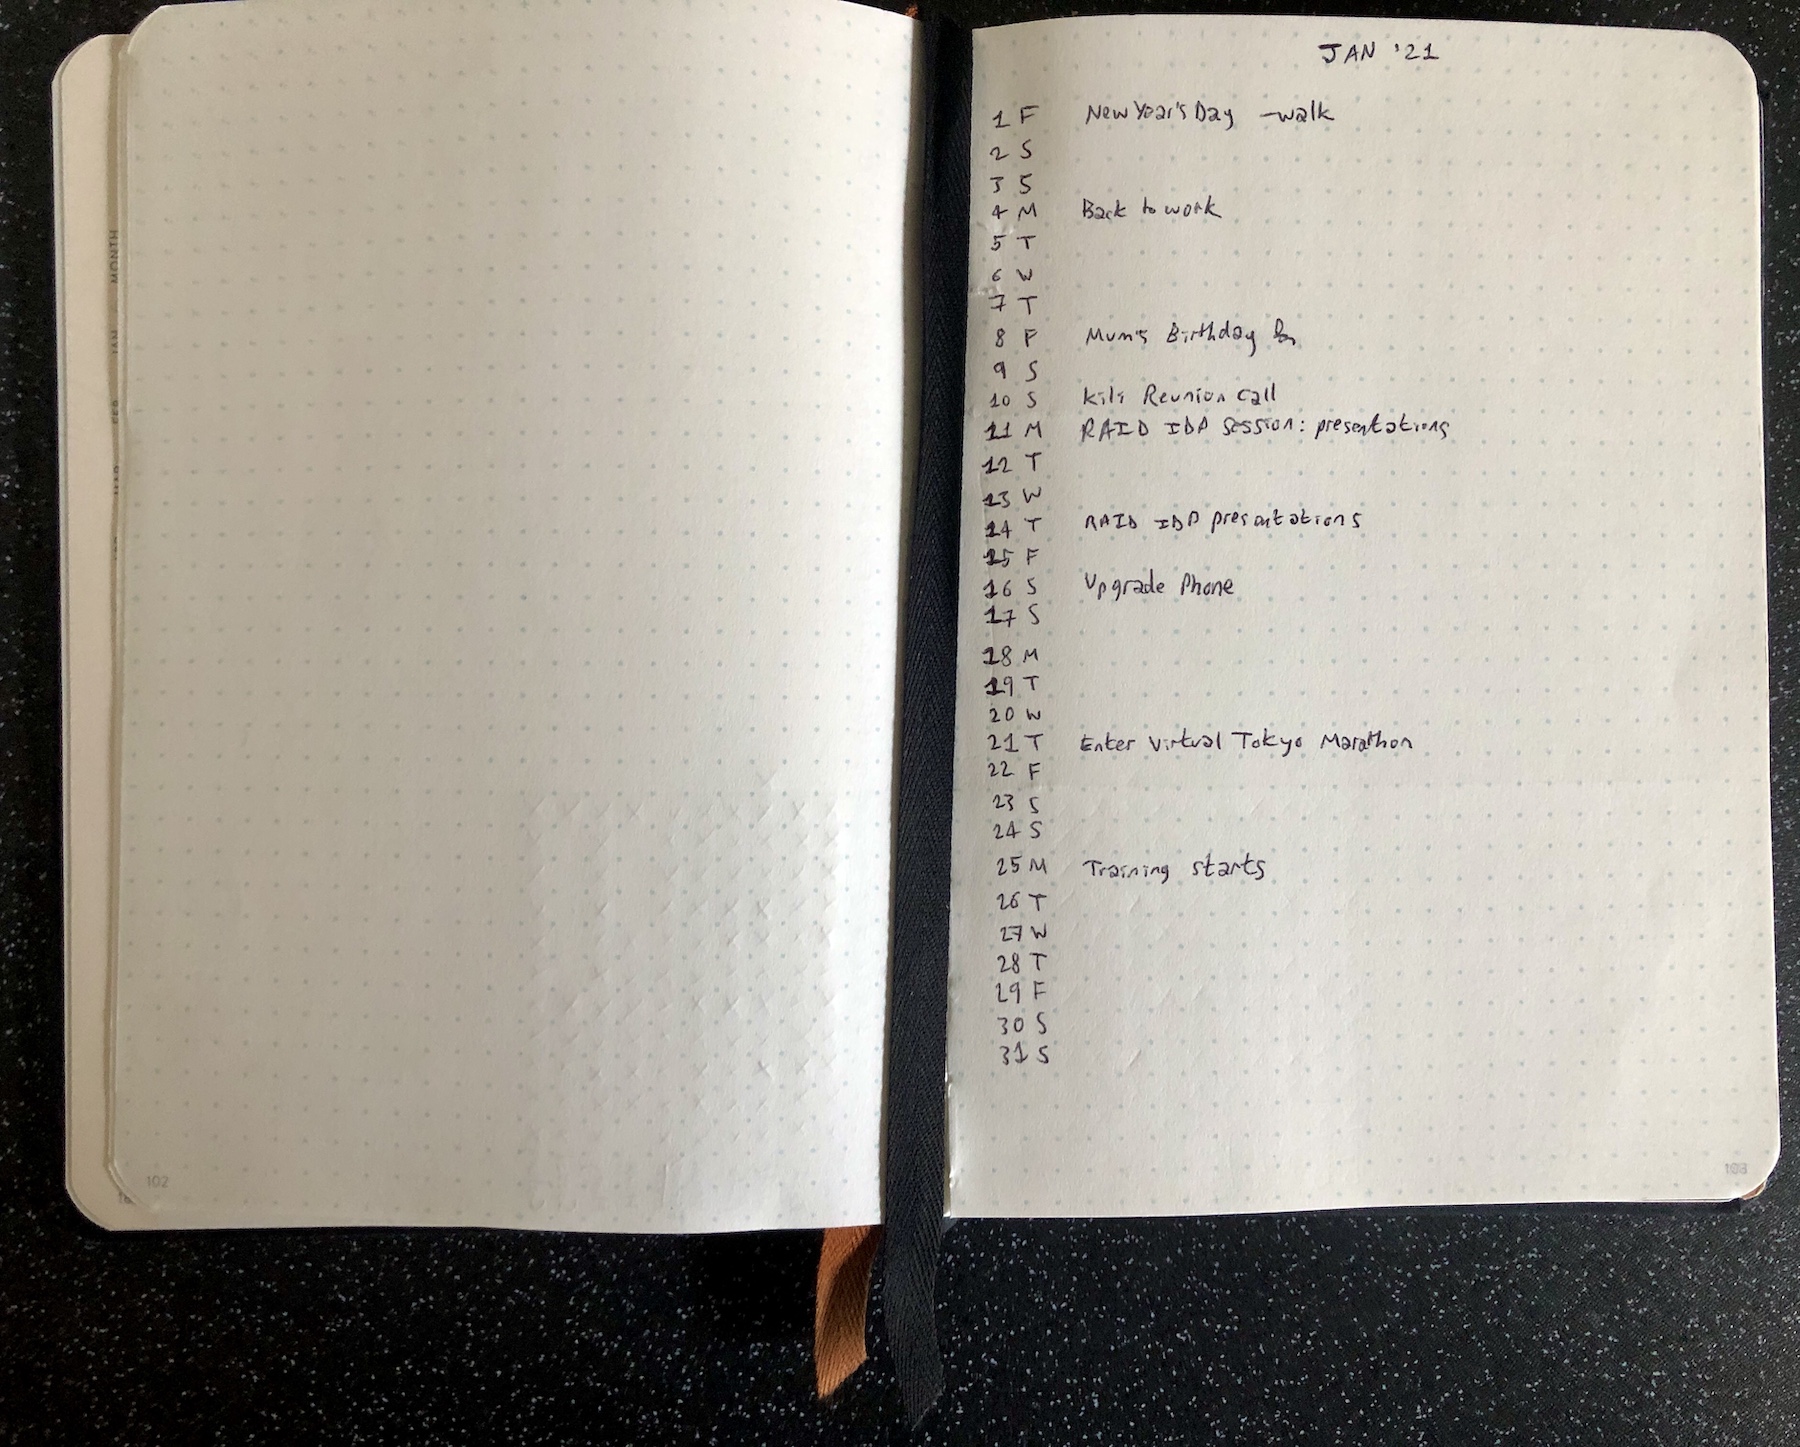 MONTH
JAN
FEB
MAR
102
JAN '21
1 F New Year's Day - walk
2 S
3 S
4 M Back to work
5 T
6 W
7 T
8 F Mum's Birthday
9 S
10 S Kili Reunion call
11 M RAID IDP session: presentations
12 T
13 W
14 T RAID IDP presentations
15 F
16 S Upgrade Phone
17 S
18 M
19 T
20 W
21 T Enter Virtual Tokyo Marathon
22 F
23 S
24 S
25 M Training starts
26 T
27 W
28 T
29 F
30 S
31 S
103